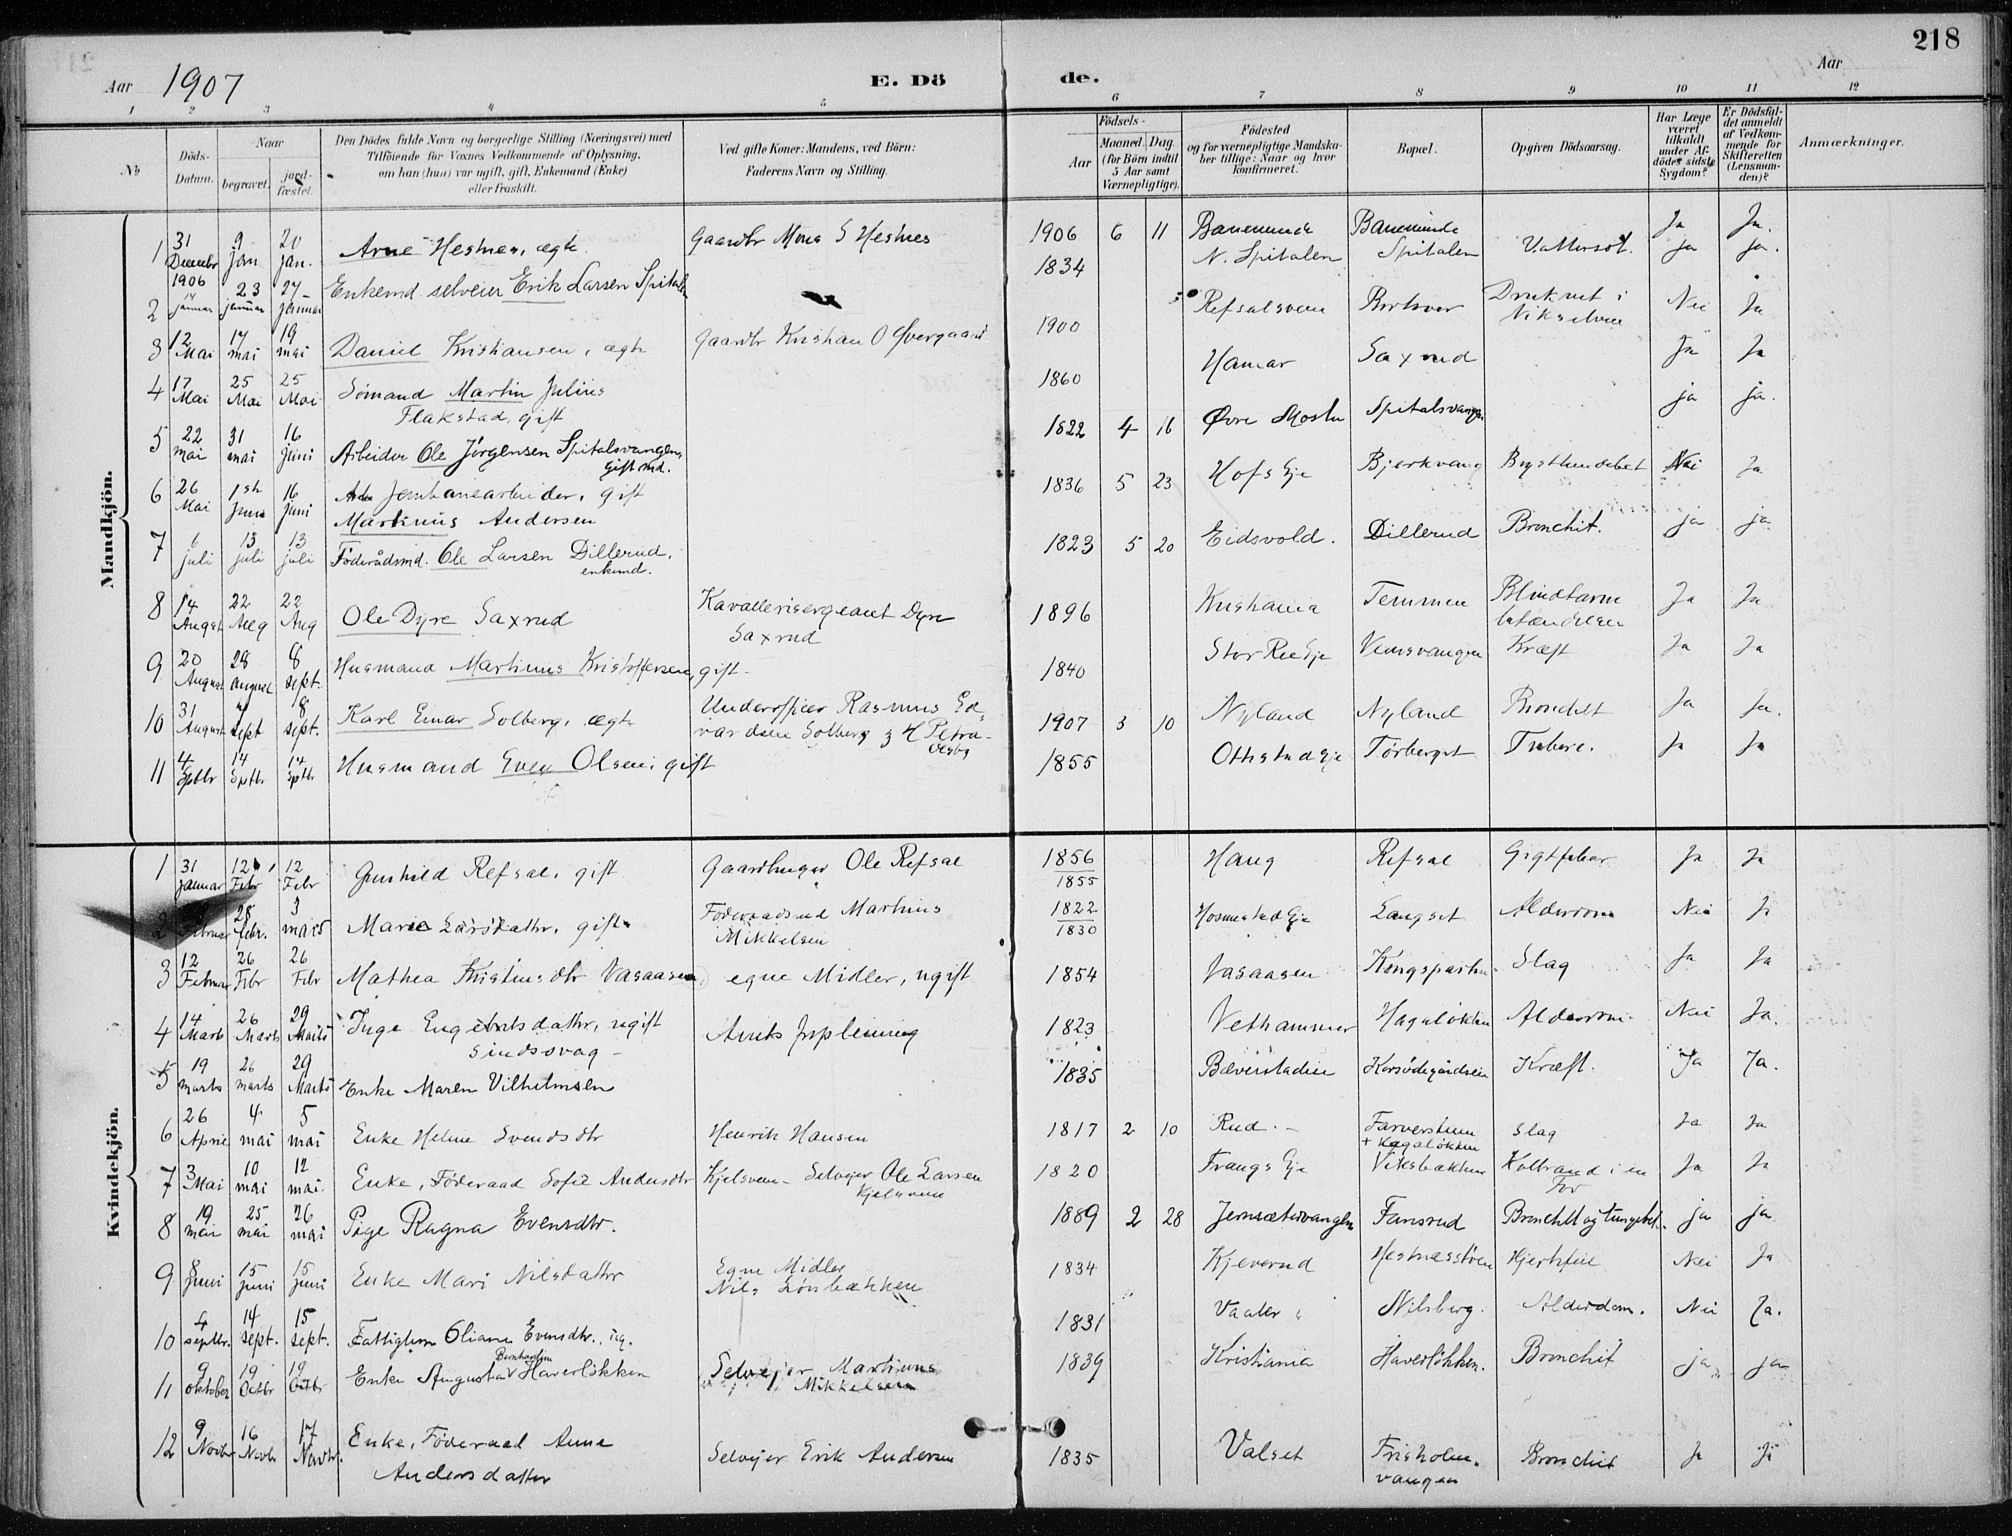 218
Aar 1907
E. Dö de.
Aar
1 2 3 4 5 6 7 8 9 10 11 12
№
Döds-Datum.
Naar
begravet.
jord-fæstet.
Den Dödes fulde Navn og borgerlige Stilling (Næringsvei) med
Tilföiende for Voxnes Vedkommende af Oplysning,
om han (hun) var ugift, gift, Enkemand (Enke)
eller fraskilt.
Ved gifte Koner: Mandens, ved Börn:
Faderens Navn og Stilling.
Födsels-
Aar
Maaned. Dag.
(for Börn indtil
5 Aar samt
Værnepligtige).
Födested
og for værnepligtige Mandska-
ber tillige: Naar og hvor
konfirmeret.
Bopæl.
Opgiven Dödsaarsag.
Har Læge
været
tilkaldt
under Af-
dödes sidste
Sygdom?
Er Dödsfal-
det anmeldt
af Vedkom-
mende for
Skifteretten
(Lensman-
den)?
Anmærkninger.
Mandkjön.
1 31 Decembr 1906 9 jan 20 jan. Arne Hestnes, ægte Gaardbr Mons S Hestnes 1906 6 11 Baneminde Baneminde Ja Ja.
2 14 januar 23 januar 27 januar Enkemd selveier Erik Larsen Spitalen 1834 N. Spitalen Spitalen Vattersot. ja ja.
3 12 Mai 17 mai 19 mai Daniel Kristiansen, ægte Gaardbr Kristian O Øvergaard 1900 Refsalsveen Druknet i Vikselven Nei Ja
4 17 Mai 25 Mai 25 Mai Sömand Martin Julius
Flakstad, gift 1860 Hamar Saxrud Ja Ja
5 22 mai 31 mai 16 juni Arbeider Ole Jörgensen Spitalsvangen,
Gift md. 1822 4 16 Øvre Spitalsvangen ja ja.
6 26 Mai 1ste Juni 16 juni Jernbanearbeider, gift
Martinius Andersen 1836 5 23 Hofs Eje Bjerkvang Nei Ja
7 6 juli 13 juli 13 juli Föderådsmd. Ole Larsen Dillerud,
enkemd. 1823 5 20 Eidsvold. Dillerud Bronchit. ja ja
8 14 August 22 Aug 22 Aug Ole Dyre Saxrud Kavallerisergeant Dyre
Saxrud 1896 Kristiania Temmen Blindtarm
betændelse Ja Ja
9 20 August 28 august 8 sept. Husmand Martinus Kristoffersen, gift 1840 Stor Ree Eje Vemsvangen Kræft Ja Ja
10 31 August sept 18 sept. Karl Einar Solberg, ægte Underofficer Rasmus Ed-
vardsen Solberg & H Petra 1907 3 10 Nyland Nyland Bronchit Ja Ja.
11 4 Septbr 14 Septbr. 14 Septbr Husmand Even Olsen, gift 1855 Ottestad Eje Törberget Tuberc. Ja Ja
Kvindekjön.
1 31 januar 12 Febr 12 Febr Gunhild Refsal, gift Gaardbruger Ole Refsal 1856
1855 Haug Refsal Gigtfeber Ja Ja
2 Februar 28 febr. 3 mars Marie Larsdatter, gift Föderaadsmd Martinus
Mikkelsen 1822
1830 Hosmestad Eje Langset Alderdom Nei Ja
3 12 Februar 26 Febr 26 Febr Mathea Kristinsdtr Vasaasen, egne Midler, ugift 1854 Vasaasen Slag Ja Ja
4 14 Marts 26 Marts 29 Marts Inge Engebretsdatter, ugift
sindssvag Amts forpleining 1823 Vethammer Hagaløkken Alderdom Nei Ja.
5 19 marts 26 marts 29 Marts Enke Maren Vilhelmsen 1835 Bæverstadeie Korsödegårdseie Kræft. Ja Ja.
6 26 April 4 mai 5 mai Enke Helene Svendsdtr Henrik Hansen 1817 2 10 Rud. Farverstuen
+ Hagaløkken Slag Ja Ja
7 3 Mai 10 mai 12 mai. Enke, Föderaad Sofie Andersdtr Kjelsveen Selveier Ole Larsen
Kjelsveen 1820 Frangs Eje Viksbækken Kolbrand i en
Fod Ja Ja
8 19 mai 25 mai 26 mai Pige Ragna Evensdtr. 1889 2 28 Jernsætervangen Fansrud Bronchit og Lungebet. ja ja
9 8 Juni 15 Juni 15 Juni Enke Mari Nilsdatter Egne Midler
Nils 1834 Kjeverud Hestnæsstöen Hjertefeil Nei Ja
10 4 septbr. 14 sept. 15 sept. Fattiglem Oliane Evensdtr., ug. 1831 Vaaler Nilsberg. Alderdom. Nei Ja.
11 9 oktober 19 Octbr 19 Octbr Enke Augusta Bernhardine Haverløkken Selveier Martinus
Mikkelsen 1839 Kristiania Haverløkken. Bronchit ja ja
12 9 Novbr 16 Novbr 17 Novbr. Enke, Föderaad Anne
Andersdatter Selveier Erik Andersen 1835 Valset Frisholm-
vangen Bronchit Ja Ja